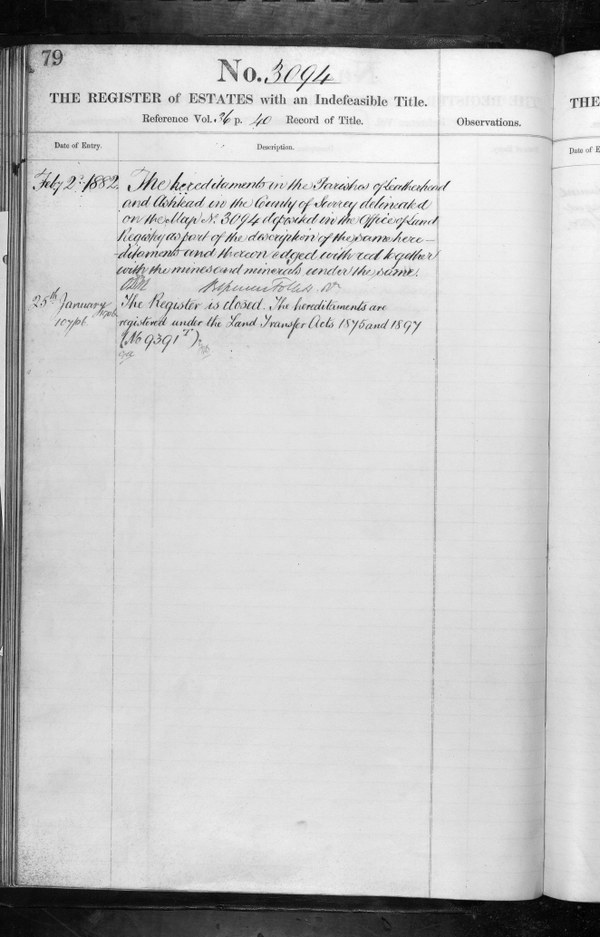 79
No. 3094
THE REGISTER of ESTATES with an Indefeasible Title.
Reference Vol. 36 p. 40 Record of Title.
Observations.
Date of Entry.
Description.
Feby 2d 1882
The hereditaments in the Parishes of Leatherhead
and Ashtead in the County of Surrey delineated
on the Map No. 3094 deposited in the Office of Land
Registry as part of the description of the same here-
ditaments and thereon edged with red together
with the mines and minerals under the same.
25th January
The Register is closed. The hereditaments are
registered under the Land Transfer Acts 1875 and 1897
(No 9391
THE
Date of E